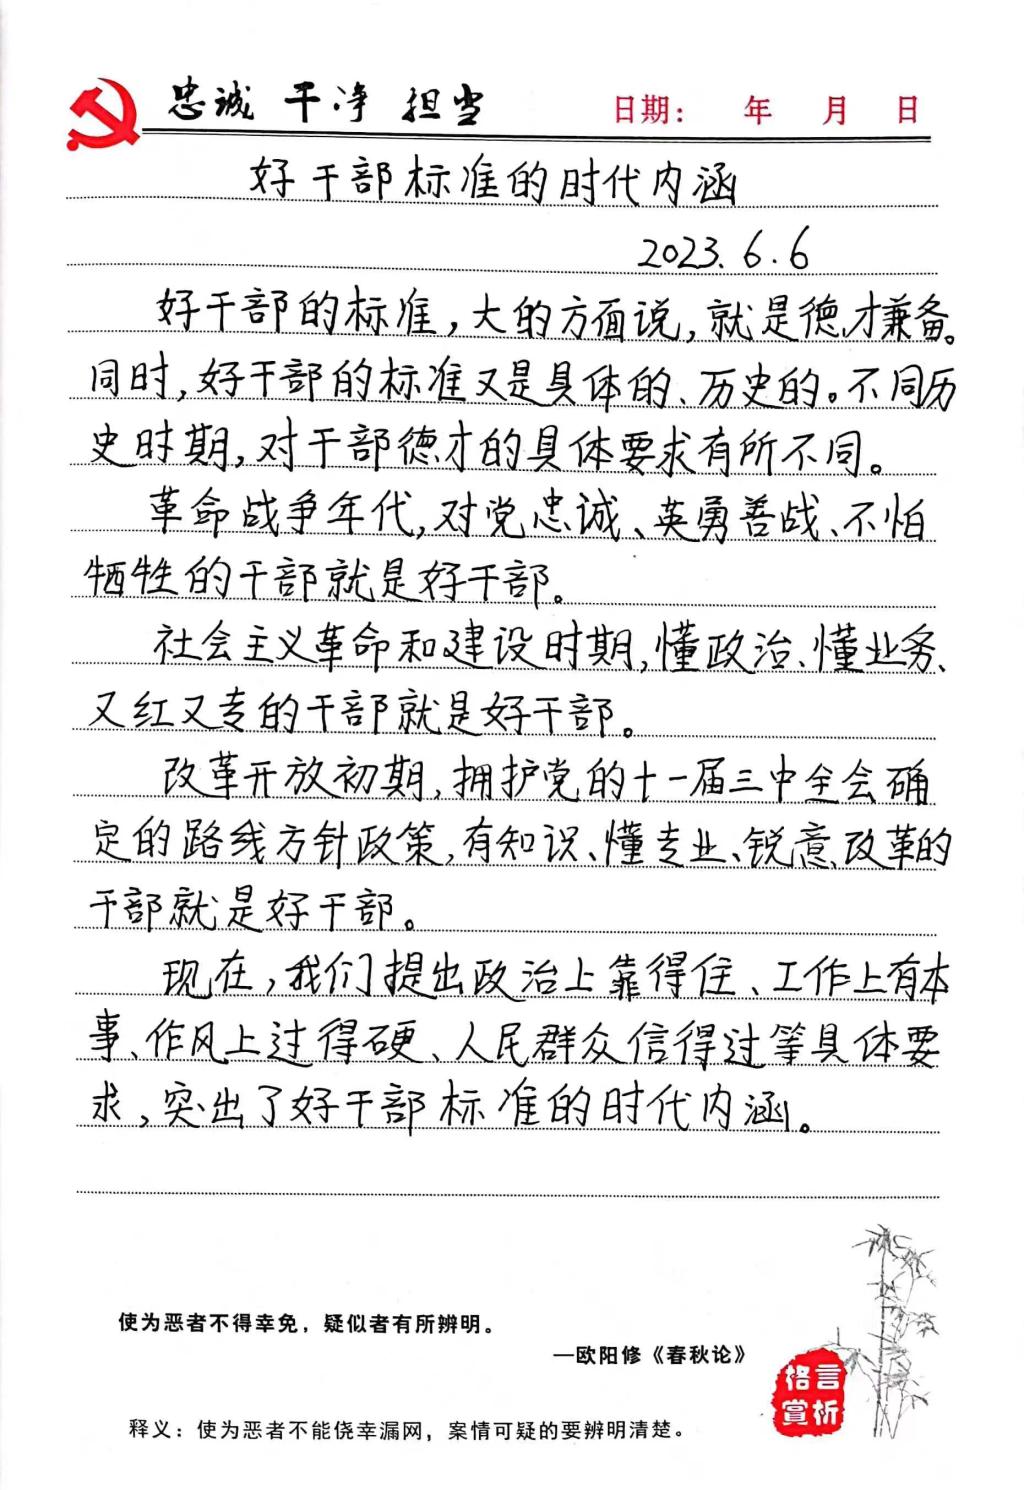 忠诚 干净 担当 日期： 年 月 日
好干部标准的时代内涵
2023.6.6
好干部的标准，大的方面说，就是德才兼备。
同时，好干部的标准又是具体的、历史的。不同历
史时期，对干部德才的具体要求有所不同。
革命战争年代，对党忠诚、英勇善战、不怕
牺牲的干部就是好干部。
社会主义革命和建设时期，懂政治、懂业务、
又红又专的干部就是好干部。
改革开放初期，拥护党的十一届三中全会确
定的路线方针政策，有知识、懂专业、锐意改革的
干部就是好干部。
现在，我们提出政治上靠得住、工作上有本
事、作风上过得硬、人民群众信得过等具体要
求，突出了好干部标准的时代内涵。
使为恶者不得幸免，疑似者有所辨明。
—欧阳修《春秋论》
格言
赏析
释义：使为恶者不能侥幸漏网，案情可疑的要辨明清楚。